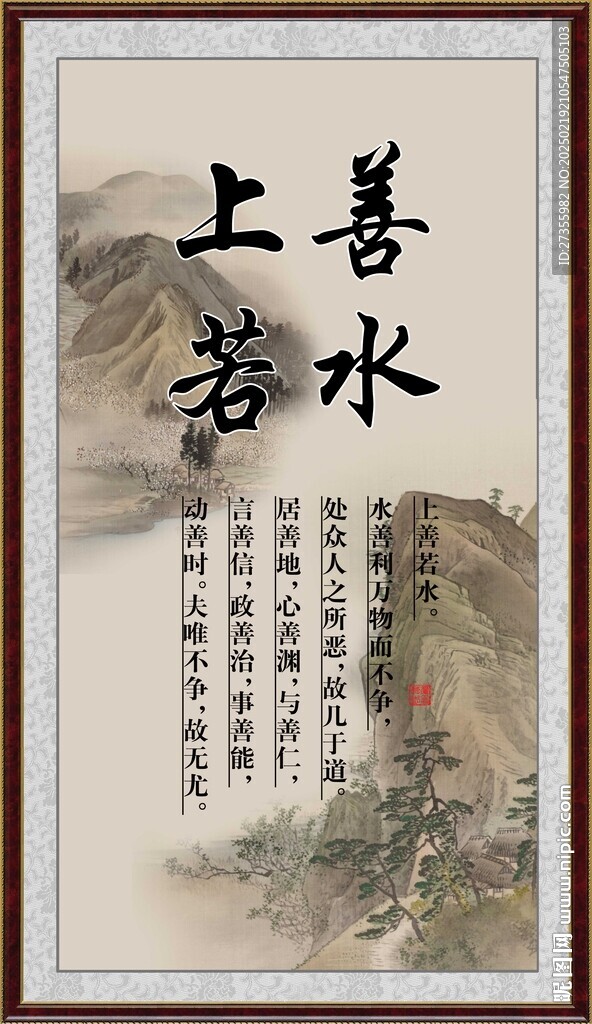 上善
若水
上善若水。
水善利万物而不争，
处众人之所恶，故几于道。
居善地，心善渊，与善仁，
言善信，政善治，事善能，
动善时。夫唯不争，故无尤。
ID:27355982 NO:20250219210547505103
昵图网 www.nipic.com